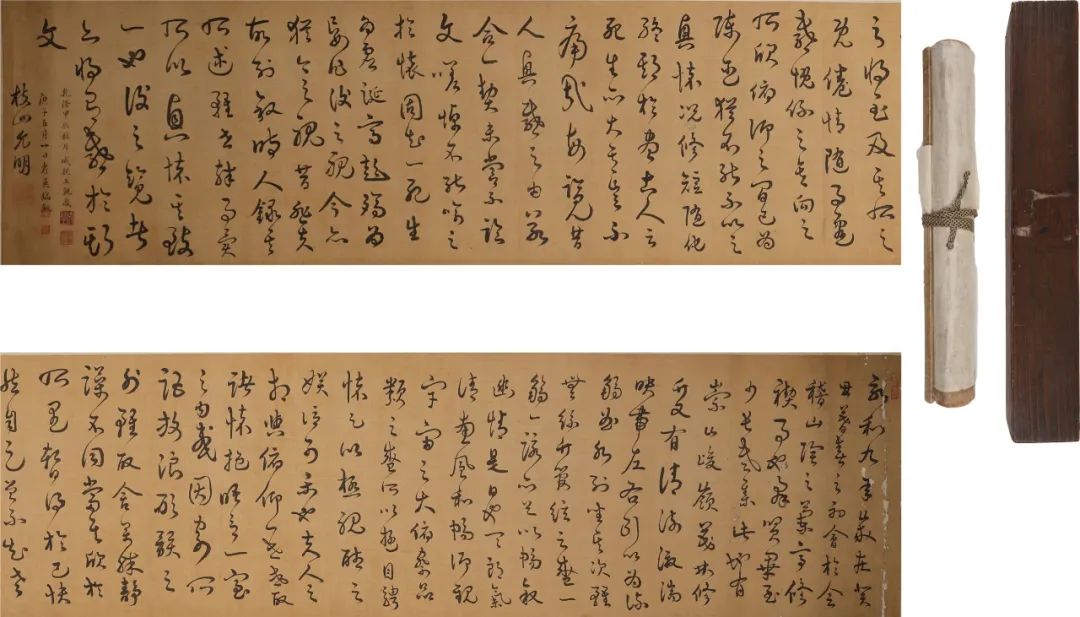 永和九年歲在癸
丑暮春之初會於會
稽山陰之蘭亭修
禊事也群賢畢至
少長咸集此地有
崇山峻嶺茂林修
竹又有清流激湍
映帶左右引以為流
觴曲水列坐其次雖
無絲竹管絃之盛一
觴一詠亦足以暢敘
幽情是日也天朗氣
清惠風和暢仰觀
宇宙之大俯察品
類之盛所以遊目騁
懷足以極視聽之
娛信可樂也夫人之
相與俯仰一世或取
諸懷抱晤言一室
之內或因寄所
託放浪形骸之
外雖取舍萬殊靜
躁不同當其欣於
所遇暫得於己快
然自足曾不知老
之將至及其所之
既倦情隨事遷
感慨係之矣向之
所欣俯仰之間已為
陳迹猶不能不以之
興懷況修短隨化
終期於盡古人云
死生亦大矣豈不
痛哉每覽昔
人興感之由若
合一契未嘗不臨
文嗟悼不能喻之
於懷固知一死生
為虛誕齊彭殤為
妄作後之視今亦
猶今之視昔悲夫
故列敘時人錄其
所述雖世殊事異
所以興懷其致
一也後之覽者
亦將有感於斯
文
乾隆甲 月 成親王觀
庚子五月廿日
枝山允明